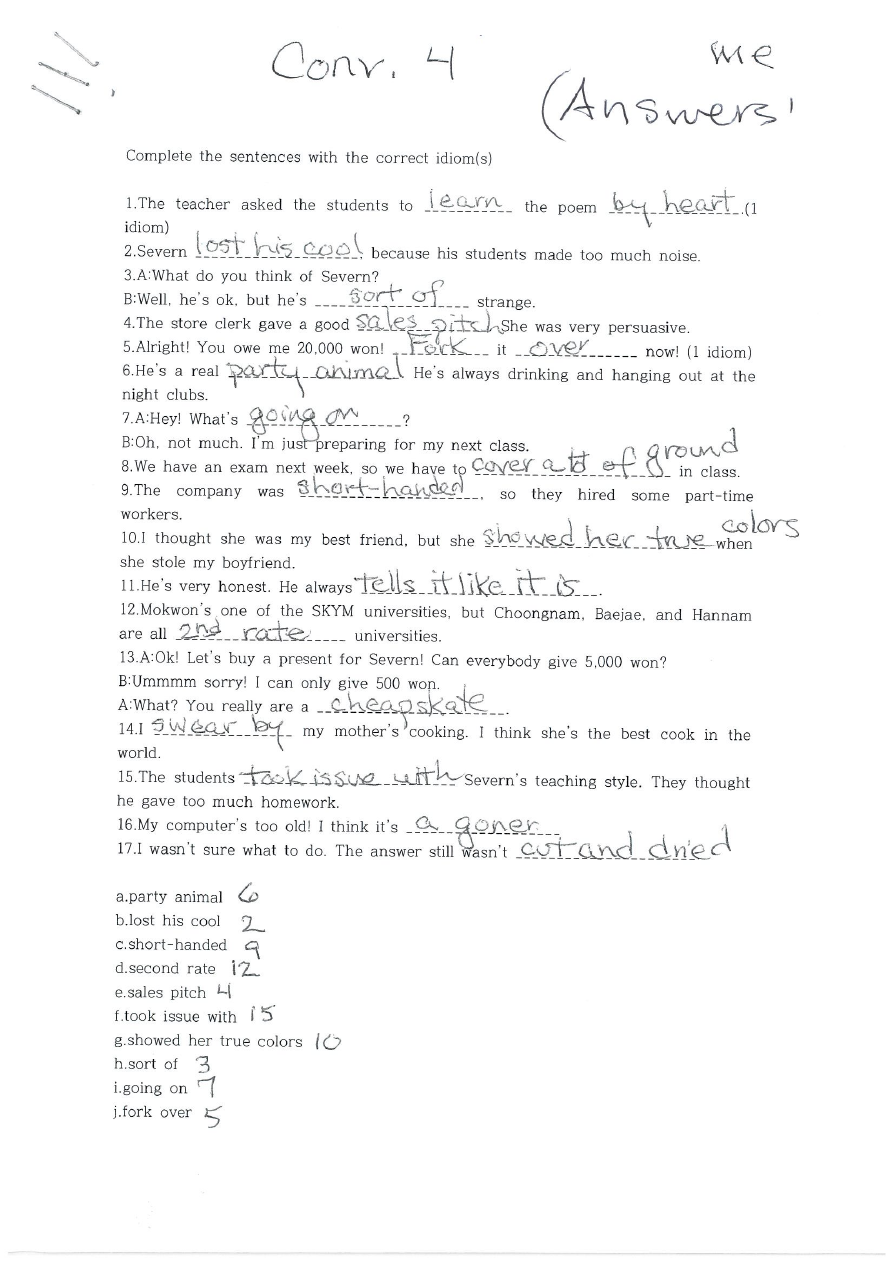 Conv. 4
me
(Answers)
Complete the sentences with the correct idiom(s)
1.The teacher asked the students to learn the poem by heart.(1
idiom)
2.Severn lost his cool because his students made too much noise.
3.A:What do you think of Severn?
B:Well, he's ok, but he's sort of strange.
4.The store clerk gave a good sales pitch She was very persuasive.
5.Alright! You owe me 20,000 won! Fork it over now! (1 idiom)
6.He's a real party animal He's always drinking and hanging out at the
night clubs.
7.A:Hey! What's going on?
B:Oh, not much. I'm just preparing for my next class.
8.We have an exam next week, so we have to cover a lot of ground in class.
9.The company was short-handed, so they hired some part-time
workers.
10.I thought she was my best friend, but she showed her true colors when
she stole my boyfriend.
11.He's very honest. He always tells it like it is.
12.Mokwon's one of the SKYM universities, but Choongnam, Baejae, and Hannam
are all 2nd rate universities.
13.A:Ok! Let's buy a present for Severn! Can everybody give 5,000 won?
B:Ummmm sorry! I can only give 500 won.
A:What? You really are a cheapskate.
14.I swear by my mother's cooking. I think she's the best cook in the
world.
15.The students took issue with Severn's teaching style. They thought
he gave too much homework.
16.My computer's too old! I think it's a goner
17.I wasn't sure what to do. The answer still wasn't cut and dried
a.party animal 6
b.lost his cool 2
c.short-handed 9
d.second rate 12
e.sales pitch 4
f.took issue with 15
g.showed her true colors 10
h.sort of 3
i.going on 7
j.fork over 5